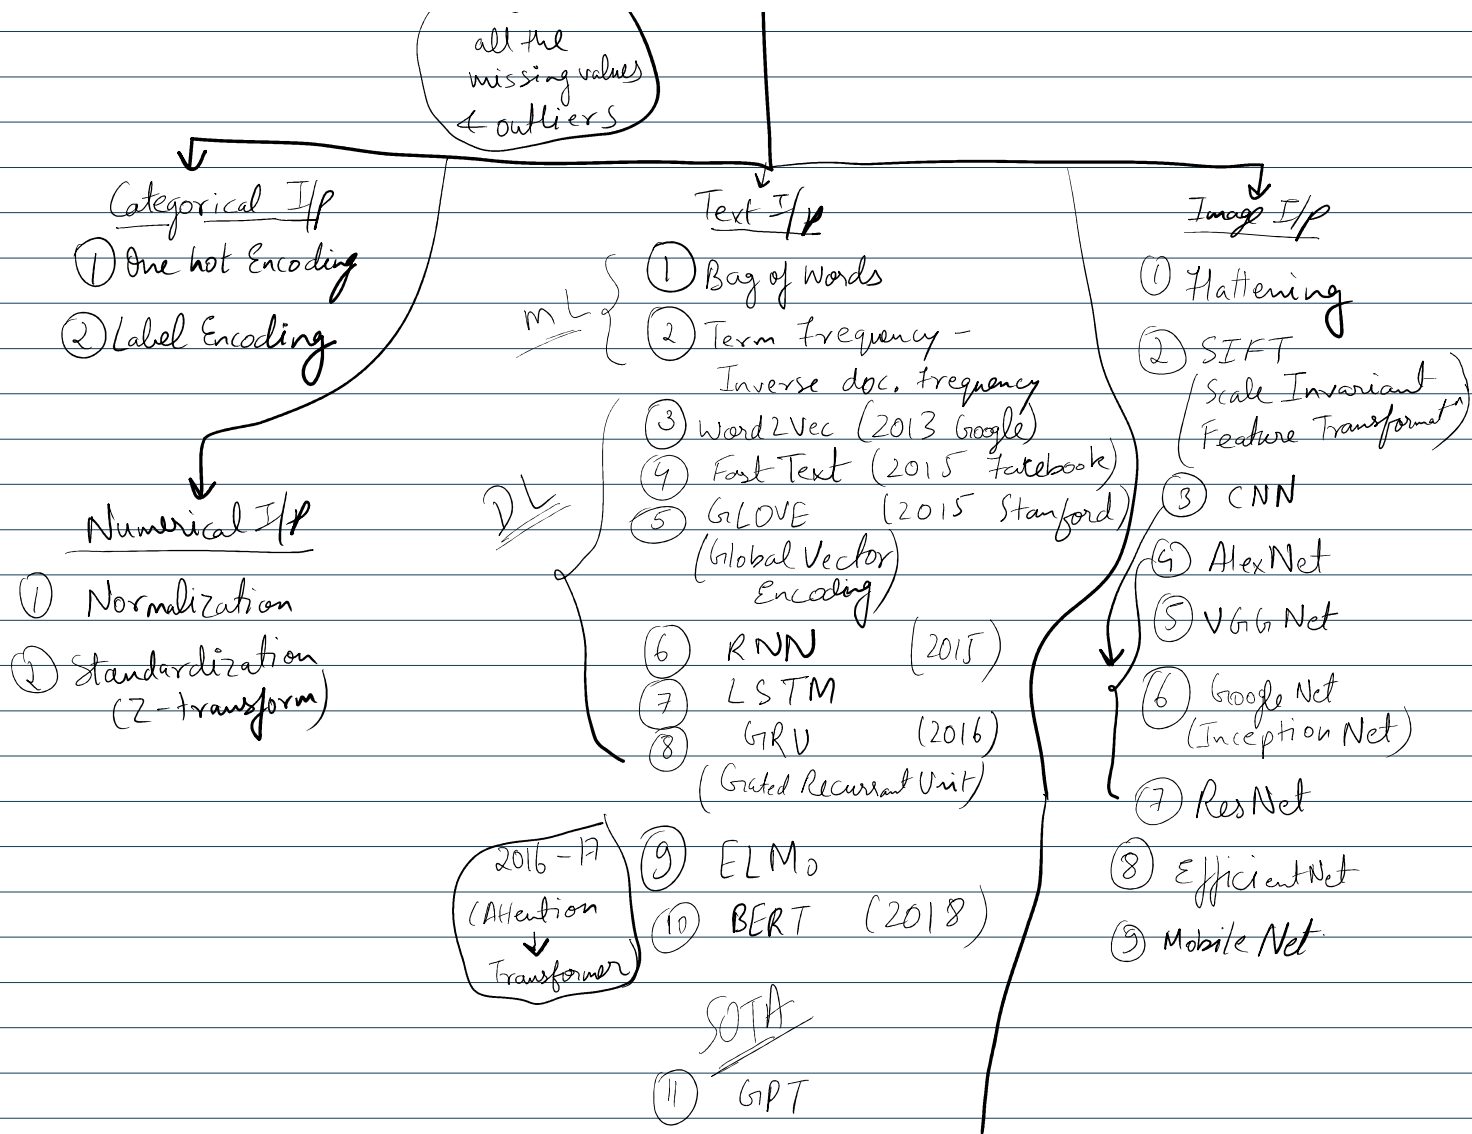 all the
missing values
& outliers
Categorical I/P
① One hot Encoding
② Label Encoding
Numerical I/P
① Normalization
② Standardization
(Z-transform)
Text I/P
ML
① Bag of Words
② Term Frequency -
Inverse doc. frequency
DL
③ Word2Vec (2013 Google)
④ Fast Text (2015 Facebook)
⑤ GLOVE (2015 Stanford)
(Global Vector
Encoding)
⑥ RNN (2015)
⑦ LSTM
⑧ GRU (2016)
(Grated Recurrant Unit)
2016-17
(Attention
↓
Transformer)
⑨ ELMo
⑩ BERT (2018)
SOTA
⑪ GPT
Image I/P
① Flattening
② SIFT
(Scale Invariant
Feature Transformatn)
③ CNN
④ AlexNet
⑤ VGG Net
⑥ Google Net
(Inception Net)
⑦ ResNet
⑧ EfficientNet
⑨ Mobile Net